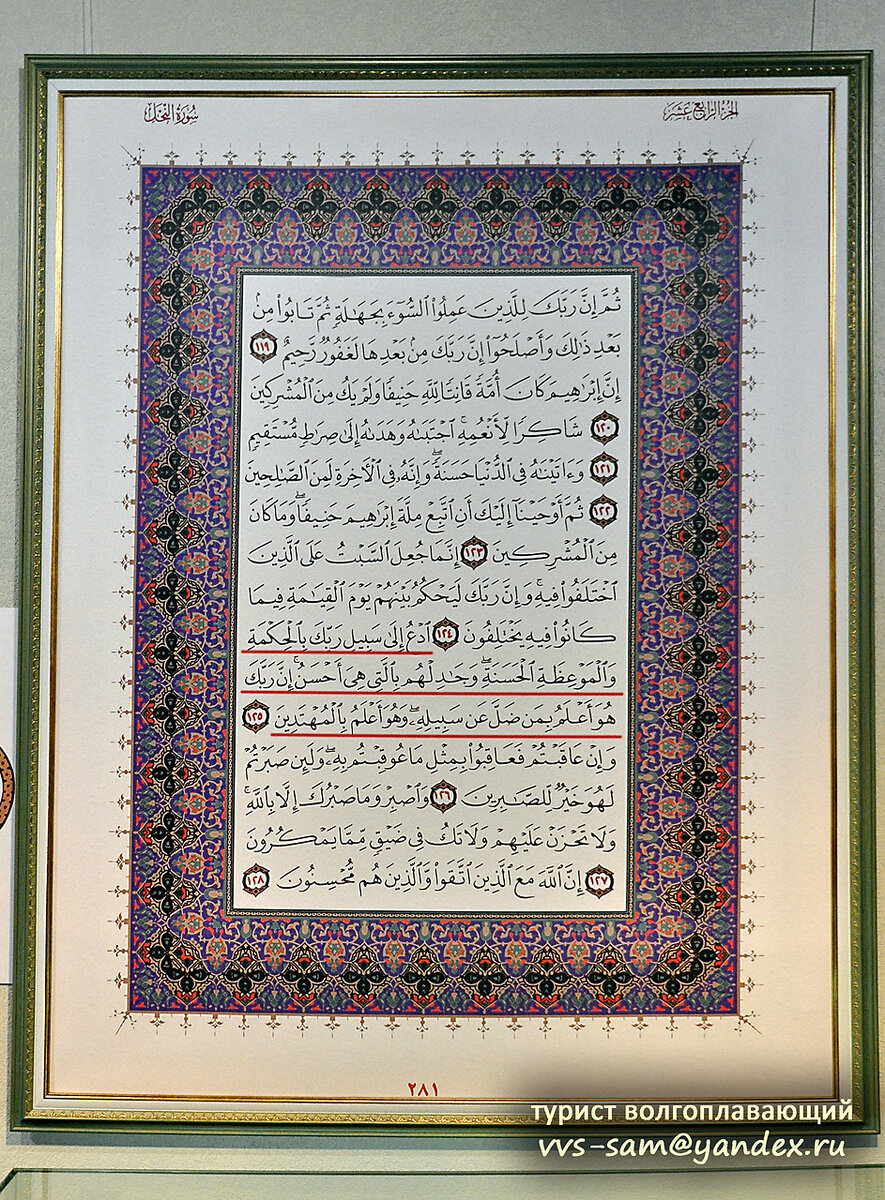 سُورَةُ النَّحْلِ
الجُزْءُ الرَّابِعَ عَشَرَ
ثُمَّ إِنَّ رَبَّكَ لِلَّذِينَ عَمِلُوا۟ ٱلسُّوٓءَ بِجَهَـٰلَةٍ ثُمَّ تَابُوا۟ مِنۢ
بَعْدِ ذَٰلِكَ وَأَصْلَحُوٓا۟ إِنَّ رَبَّكَ مِنۢ بَعْدِهَا لَغَفُورٌ رَّحِيمٌ ١١٩
إِنَّ إِبْرَٰهِيمَ كَانَ أُمَّةً قَانِتًا لِّلَّهِ حَنِيفًا وَلَمْ يَكُ مِنَ ٱلْمُشْرِكِينَ
١٢٠ شَاكِرًا لِّأَنْعُمِهِ ۚ ٱجْتَبَىٰهُ وَهَدَىٰهُ إِلَىٰ صِرَٰطٍ مُّسْتَقِيمٍ
١٢١ وَءَاتَيْنَـٰهُ فِى ٱلدُّنْيَا حَسَنَةً ۖ وَإِنَّهُۥ فِى ٱلْـَٔاخِرَةِ لَمِنَ ٱلصَّـٰلِحِينَ
١٢٢ ثُمَّ أَوْحَيْنَآ إِلَيْكَ أَنِ ٱتَّبِعْ مِلَّةَ إِبْرَٰهِيمَ حَنِيفًا ۖ وَمَا كَانَ
مِنَ ٱلْمُشْرِكِينَ ١٢٣ إِنَّمَا جُعِلَ ٱلسَّبْتُ عَلَى ٱلَّذِينَ
ٱخْتَلَفُوا۟ فِيهِ ۚ وَإِنَّ رَبَّكَ لَيَحْكُمُ بَيْنَهُمْ يَوْمَ ٱلْقِيَـٰمَةِ فِيمَا
كَانُوا۟ فِيهِ يَخْتَلِفُونَ ١٢٤ ٱدْعُ إِلَىٰ سَبِيلِ رَبِّكَ بِٱلْحِكْمَةِ
وَٱلْمَوْعِظَةِ ٱلْحَسَنَةِ ۖ وَجَـٰدِلْهُم بِٱلَّتِى هِىَ أَحْسَنُ ۚ إِنَّ رَبَّكَ
هُوَ أَعْلَمُ بِمَن ضَلَّ عَن سَبِيلِهِۦ ۖ وَهُوَ أَعْلَمُ بِٱلْمُهْتَدِينَ ١٢٥
وَإِنْ عَاقَبْتُمْ فَعَاقِبُوا۟ بِمِثْلِ مَا عُوقِبْتُم بِهِۦ ۖ وَلَئِن صَبَرْتُمْ
لَهُوَ خَيْرٌ لِّلصَّـٰبِرِينَ ١٢٦ وَٱصْبِرْ وَمَا صَبْرُكَ إِلَّا بِٱللَّهِ ۚ
وَلَا تَحْزَنْ عَلَيْهِمْ وَلَا تَكُ فِى ضَيْقٍ مِّمَّا يَمْكُرُونَ
١٢٧ إِنَّ ٱللَّهَ مَعَ ٱلَّذِينَ ٱتَّقَوا۟ وَّٱلَّذِينَ هُم مُّحْسِنُونَ ١٢٨
٢٨١
турист волгоплавающий
vvs-sam@yandex.ru